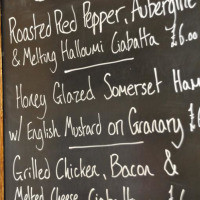 Roasted Red Pepper, Aubergine
& Melting Halloumi Ciabatta £6.00
Honey Glazed Somerset Ham
w/ English Mustard on Granary £
Grilled Chicken, Bacon &
Melted Cheese Ciabatta £6